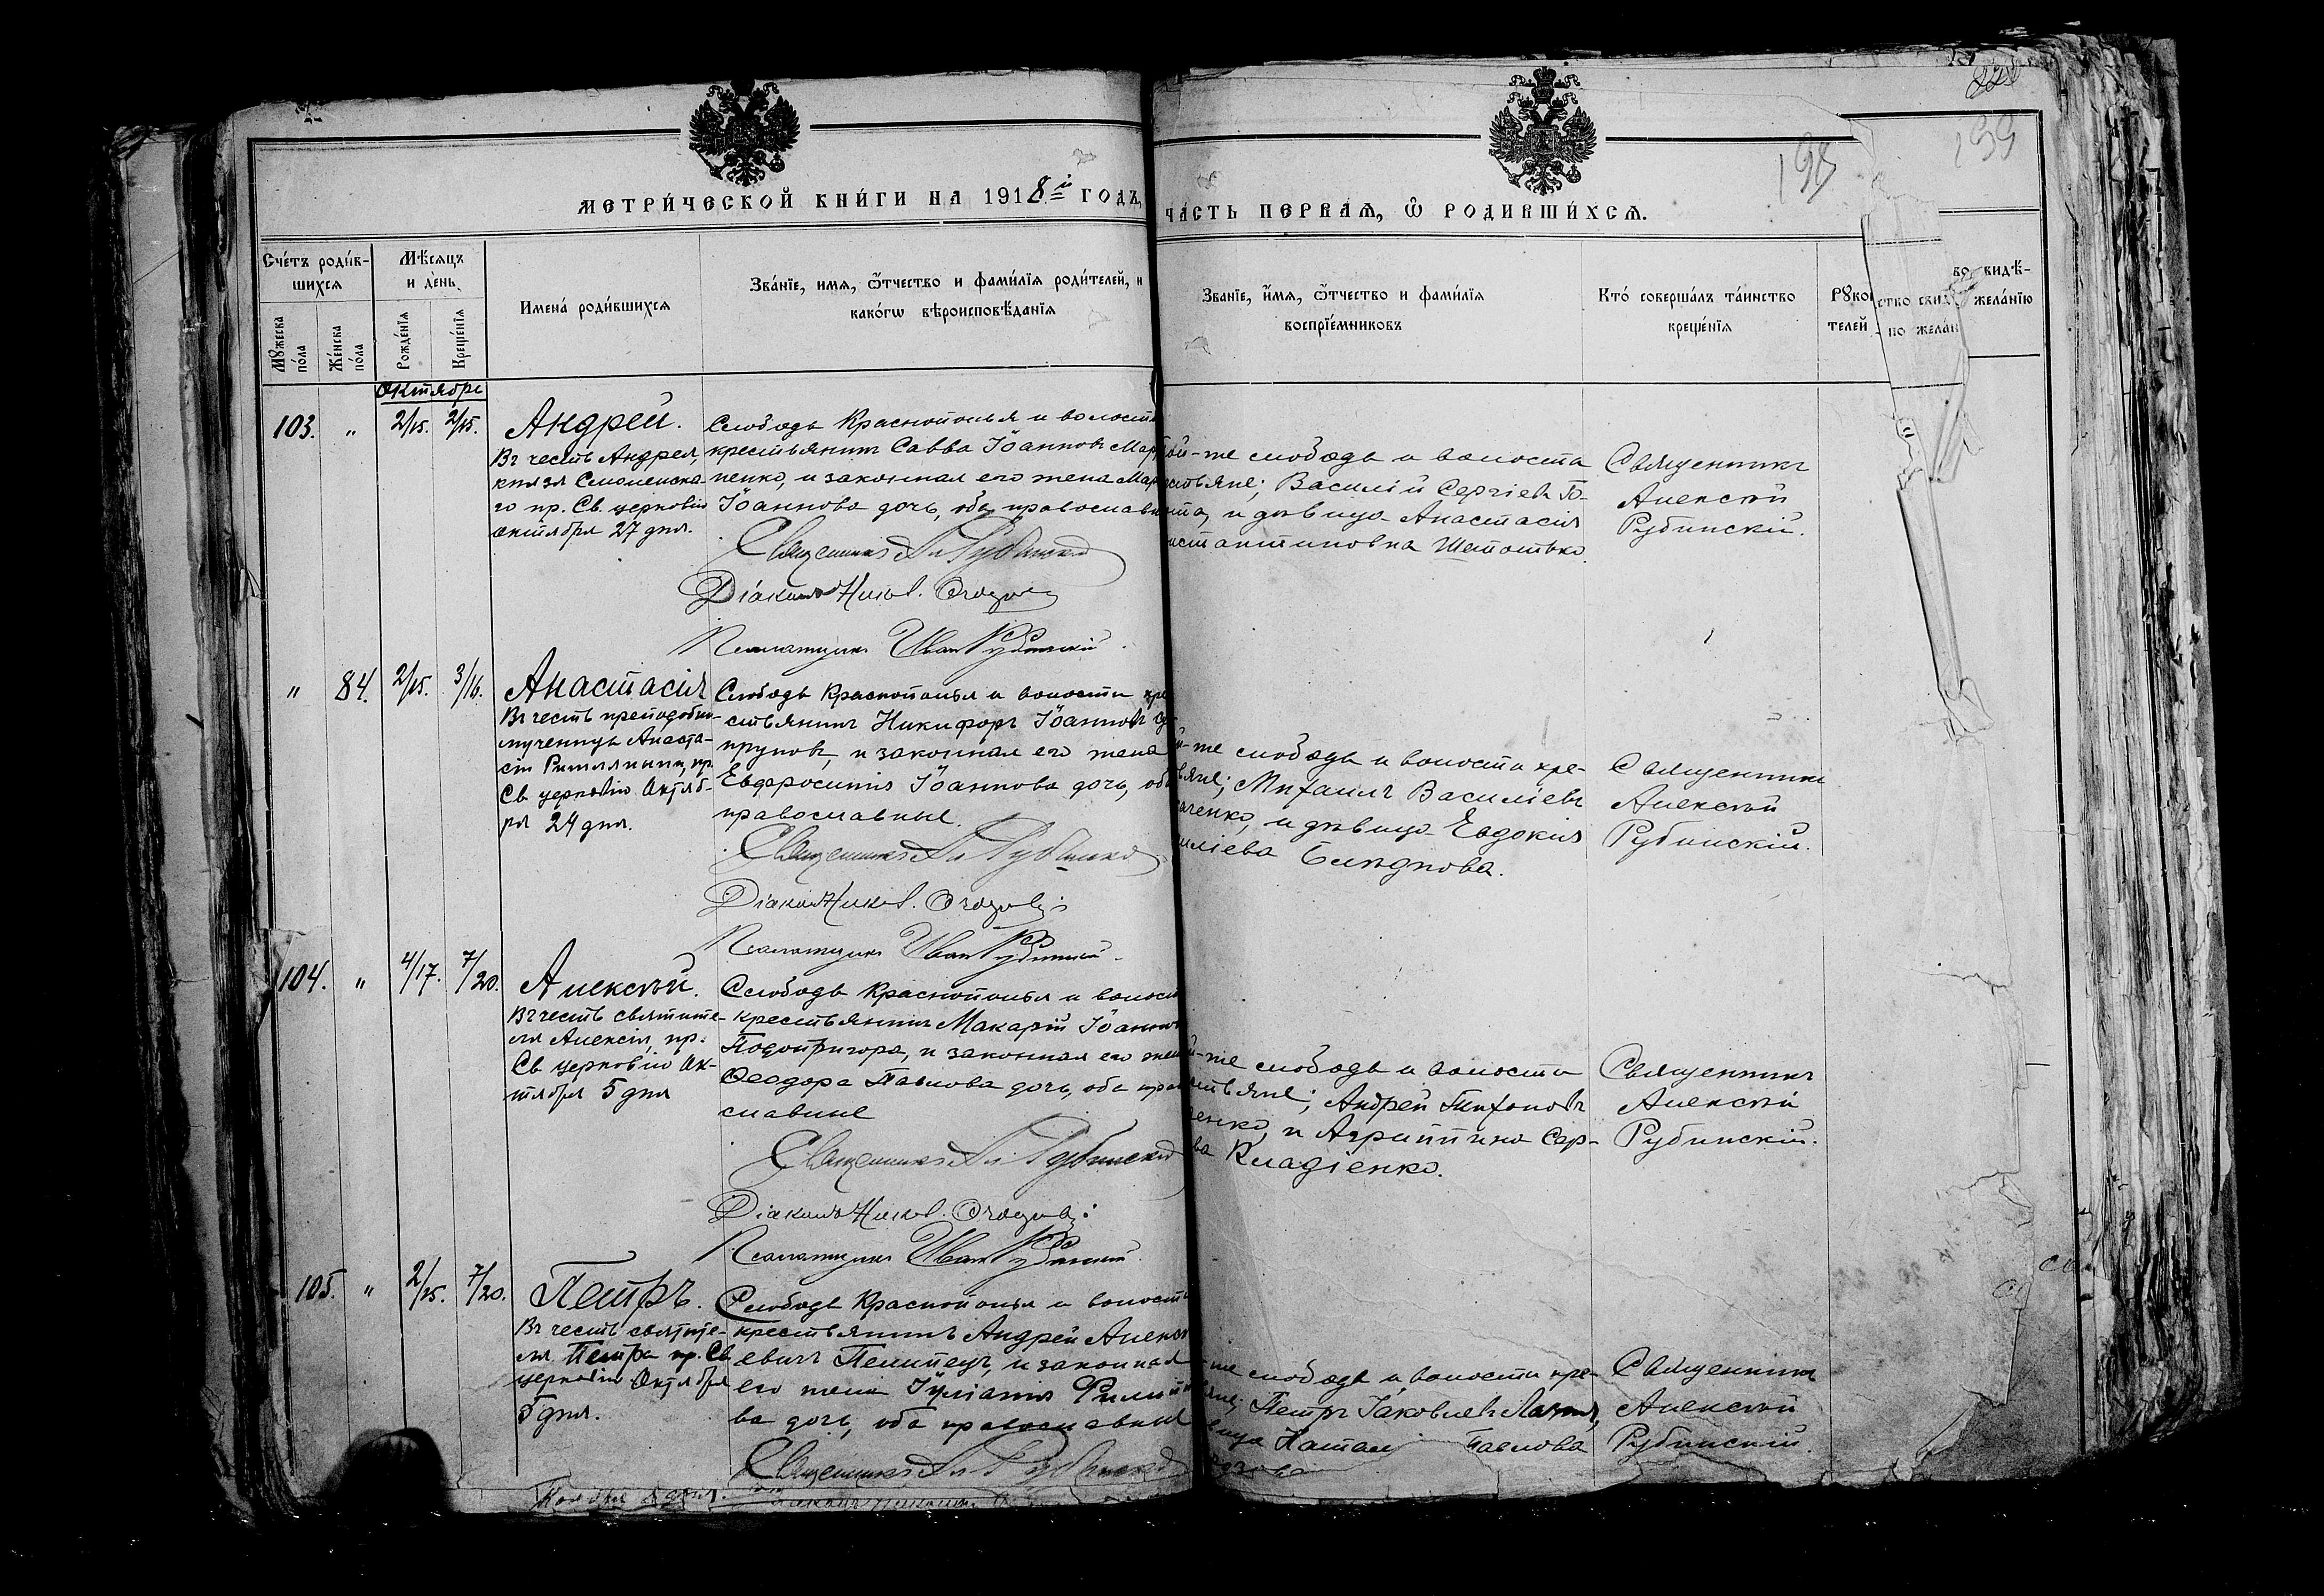 МЕТРИ́ЧЕСКОЙ КНИ́ГИ НА 1918й ГОДЪ,
ЧА́СТЬ ПЕРВАЯ, Ѿ РОДИВШИ́ХСЯ.
195
199
Сче́тъ роди́в-
шихся
Мѣ́сяцъ
и де́нь
Мꙋжеска
по́ла
Же́нска
по́ла
Рожде́нїя
Креще́нїя
Имена̀ роди́вшихся
Зва́нїе, имя, ѻ҆́тчество и фами́лїя роди́телей, и
како́гѡ вѣроисповѣ́данїя
Зва́нїе, и҆́мя, ѻ҆́тчество и фами́лїя
воспрїе́мниковъ
Кто́ соверша́лъ та́инство
креще́нїя
Рꙋко
телей
ство свид
по жела́н
во видѣ-
жела́нїю
октябрь
103. " 2/15. 2/15.
Андрей.
Въ честь Андрея,
князя Смоленска-
го пр. Св. церковію
октября 27 дня.
Слободы Краснополья и волости
крестьянинъ Савва Іоанновъ Мар
ненко, и законная его жена Мар
Іоаннова дочь, оба православн
Священникъ Ал Рубинскій
Діаконъ Никол.
Псаломщикъ Иван Рубинский.
ой-же слободы и волости
стьяне; Василій Сергіевъ
и дѣвица Анастасія
стантиновна
Священникъ
Алексѣй
Рубинскій.
" 84. 2/15. 3/16.
Анастасія
Въ честь преподобно-
мученицы Анаста-
сіи Римляныни, пр.
Св. церковію Октяб-
ря 24 дня.
Слободы Краснополья и волости кре
стьянинъ Никифоръ Іоанновъ Су-
пруновъ, и законная его жена
Евфросинія Іоаннова дочь, оба
православные.
Священникъ Ал Рубинскій
Діаконъ Никол.
Псаломщикъ Иван Рубинский.
й-же слободы и волости кре-
ьяне; Михаилъ Василіевъ
ченко, и дѣвица Евдокія
иліева
Священникъ
Алексѣй
Рубинскій.
104. " 4/17. 7/20.
Алексѣй.
Въ честь святите-
ля Алексія, пр.
Св церковію Ок-
тября 5 дня
Слободы Краснополья и волост
крестьянинъ Макарій Іоаннов
Подопригора, и законная его жен
Ѳеодора Павлова дочь, оба прав
славные
Священникъ Ал Рубинскій
Діаконъ Никол.
Псаломщикъ Иван Рубинский.
й-же слободы и волости
стьяне; Андрей Тихоновъ
енко, и Агриппина Сер-
ва Кладіенко.
Священникъ
Алексѣй
Рубинскій.
105. " 2/15. 7/20.
Петръ.
Въ честь святите-
ля Петра пр. Св
церковію Октября
5 дня.
Слободы Краснополья и волости
крестьянинъ Андрей Алексѣ
евичъ Пелипецъ, и законная
его жена Іуліанія Филип
ва дочь, оба православные
Священникъ Ал Рубинскій
же слободы и волости кре-
яне; Петръ Іаковлевъ
ица Натал Павлова
Священникъ
Алексѣй
Рубинскій.